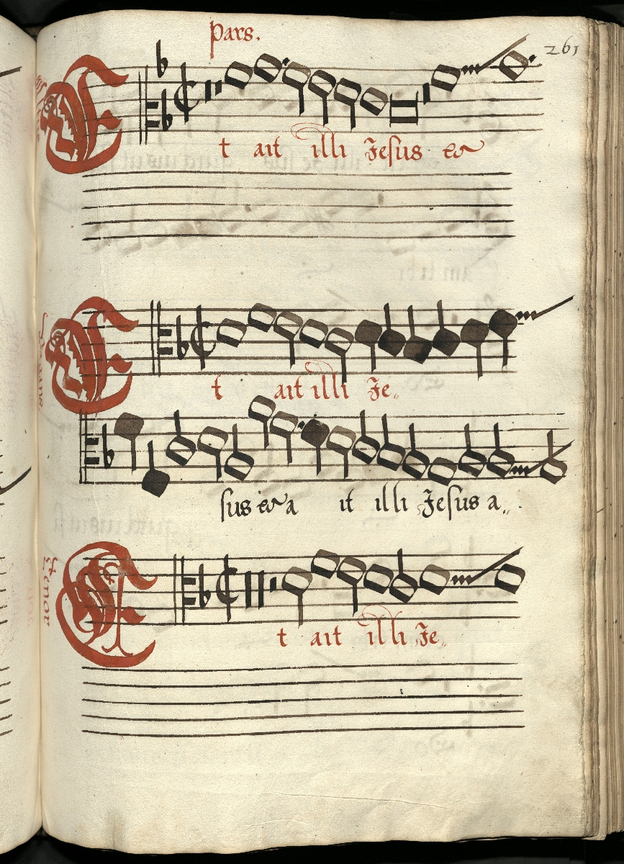 Pars.
261
Et ait illi Jesus et
Et ait illi Je
sus et a it illi Jesus a
tenor
Et ait illi Je